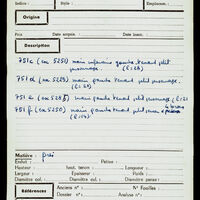 Indice :
Style :
Emplacem. :
Origine
Prix
Date acquis. :
Date invent. :
Description
751c (ca 5251) main inférieure gauche tenant petit
personnage. (l: 28)
751d (ca 5229) main gauche tenant petit personnage.
751e (ca 5228) main gauche tenant petit personnage (l: 21
751f (ca 5250) main gauche tenant petit
Matière :
Patine :
Hauteur :
haut. tenon :
Longueur :
Largeur :
Epaisseur :
Poids :
Diamètre sup. :
Diamètre col. :
Diamètre panse :
Références
Ancien n° :
N° Fouilles :
Dossier :
Analyse n° :